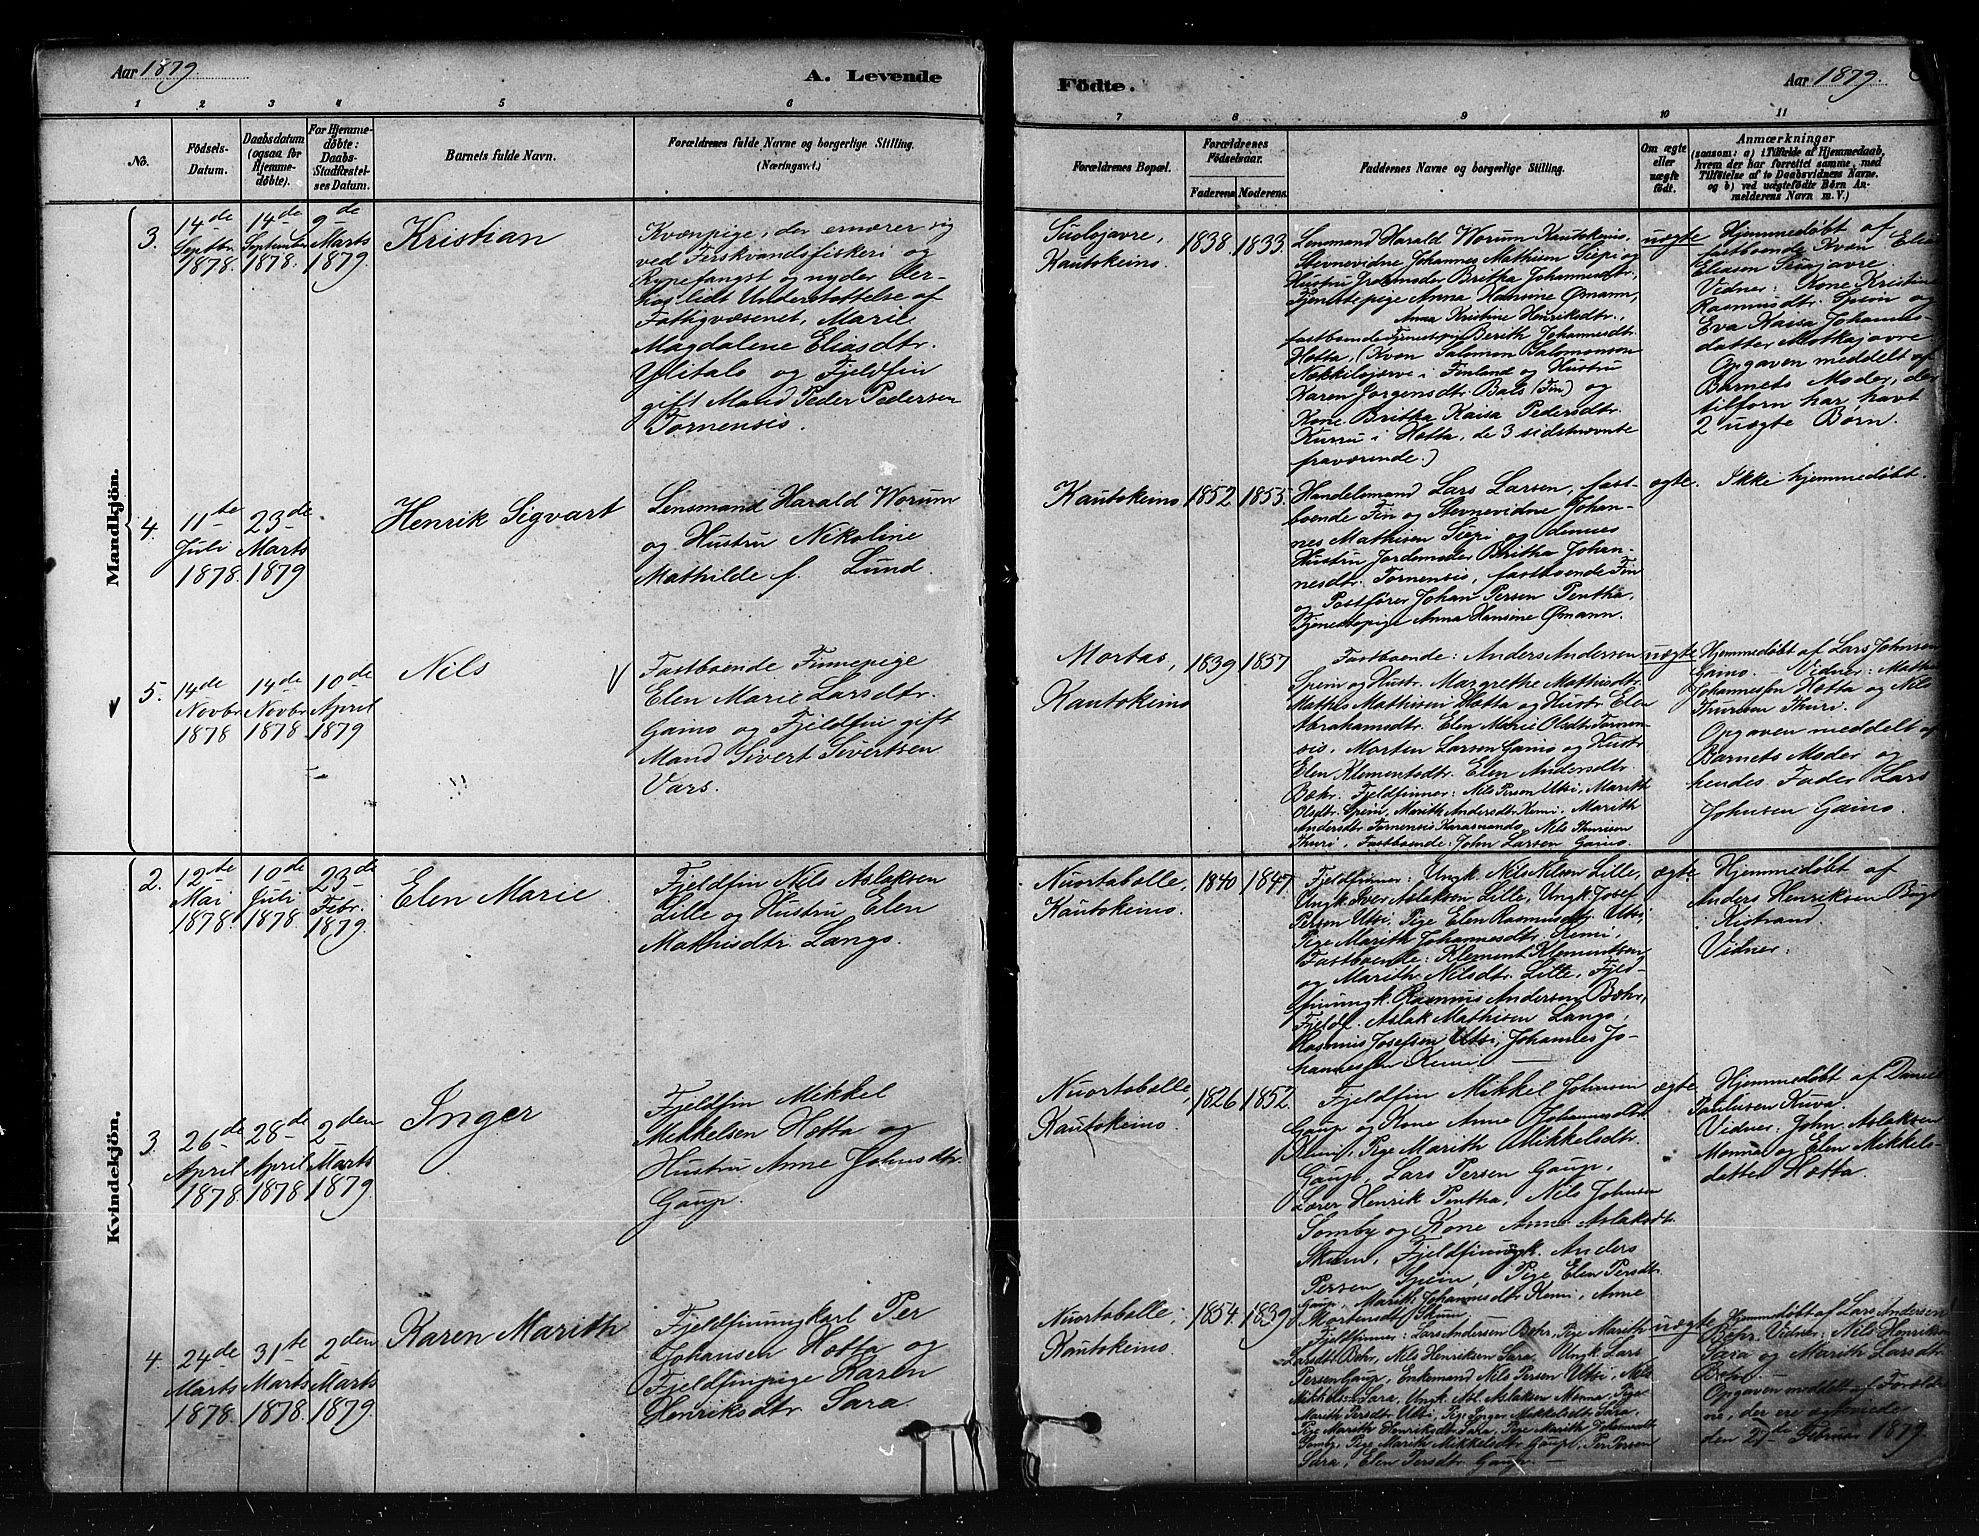 Aar 1879.
A. Levende
Fødte.
Aar 1879.
1 2 3 4 5 6
7 8 9 10 11
No.
Fødsels-
Datum.
Daabsdatum
(ogsaa for
Hjemme-
døbte).
For Hjemme-
døbte:
Daabs-
Stadfæstel-
ses Datum.
Barnets fulde Navn.
Forældrenes fulde Navne og borgerlige Stilling.
(Næringsvei.)
Forældrenes Bopæl.
Forældrenes
Fødselsaar.
Faderens
Moderens.
Faddernes Navne og borgerlige Stilling.
Om ægte
eller
uægte
født.
Anmærkninger
(saasom: a) i Tilfælde af Hjemmedaab,
hvem der har forrettet samme, med
Tilføielse af to Daabsvidners Navne.
og b) ved uægtefødte Børn An-
melderens Navn m. V.)
Mandkjön.
3.
14de
Septbr.
1878.
14de
September
1878.
9de
Marts
1879.
Kristian
Kvænpige, der ernærer sig
ved Ferskvandsfiskeri og
Rypefangst og nyder der-
hos lidt Understøttelse af
Fattigvæsenet, Marie
Magdalene Eliasdtr.
Ylitalo og Fjeldfin
gift Mand Peder Pedersen
Tornensis.
Suolojavre,
Kautokeino.
1838.
1833.
Lensmand Harald Worum Kautokeino,
Stevnevidne Johannes Mathisen Siepi og
Hustru Jordmoder Britha Johannesdtr,
Tjenestepige Anna Hansine Ømann,
Anna Kristine Henriksdtr.,
fastboende Tjenestepi Berith Johannesdtr
Hotta, (Kvæn Salomon Salomonsen
Nækkiläjerve i Finland og Hustru
Karen Jørgensdtr Bals (Fin) og
Kone Britha Kaisa Pedersdtr
Kurru i Hotta, de 3 sidstnævnte
fraværende.)
uægte
Hjemmedøbt af
fastboende Kvæn Elias
Eliasen Siujavre.
Vidner: Kone Kristine
Rasmusdtr. Spein og
Eva Kaisa Johannes-
datter Motkajavre
Opgaven meddelt af
Barnets Moder, der
tilforn har havt
2 uægte Børn.
4.
11te
Juli
1878.
23de
Marts
1879
Henrik Sigvart
Lensmand Harald Worum
og Hustru Nikoline
Mathilde f. Lund.
Kautokeino
1852.
1855.
Handelsmand Lars Larsen, fast-
boende Fin og Stevnevidne Johan-
nes Mathisen Siepi og dennes
Hustru Jordemoder Britha Johan-
nesdtr. Tornensis, fastboende Fin
og Postfører Johan Persen Pentha,
Tjenestepige Anna Hansine Ømann.
ægte.
Ikke hjemmedøbt.
5.
14de
Novbr.
1878
14de
Novbr
1878.
10de
April
1879
Nils
Fastboende Finnepige
Elen Marie Larsdtr.
Gaino og Fjeldfin gift
Mand Sivert Sivertsen
Vars.
Mortas,
Kautokeino
1839
1857
Fastboende: Anders Andersen
Spein og Hustr. Margrethe Mathisdtr.
Mathis Mathisen Hætta og Hustr Elen
Abrahamsdtr. Elen Marie Olsdtr. Tornen-
sis, Morten Larsen Gaino og Hustr
Elen Klementsdtr. Elen Andersdtr
Bæhr. Fjeldfinner: Nils Persen Utsi, Marith
Olsdtr. Spein, Marith Andersdtr Kemi. Marith
Andersdtr Tornensis Karasuando, Nils Thuresen
Thuri, Fastboende: John Larsen Gaino
uægte
Hjemmedøbt af Lars Johnsen
Gaino. Vidner: Mathis
Johannesen Hotta og Nils
Thuresen Thuri.
Opgaven meddelt af
Barnets Moder og
hendes Fader Lars
Johnsen Gaino
Kvindekjön.
2.
12te
Mai
1878.
10de
Juli
1878.
23de
Febr.
1879.
Elen Marie
Fjeldfin Nils Aslaksen
Lille og Hustru Elen
Mathisdtr. Lango.
Nuortabelle,
Kautokeino.
1840
1847.
Fjeldfinner: Ungk. Nils Nilsen Lille,
Ungk. Iver Aslaksen Lille, Ungk Josef
Persen Utsi, Pige Elen Rasmusdtr. Utsi
Pige Marith Johannesdtr. Kemi,
Fastboende: Klement Klementsen
og Marith Nilsdtr. Lille, Fjeld-
finungk. Rasmus Andersen Bæhr,
Fjeldf. Aslak Mathisen Lango,
Rasmus Josefsen Utsi, Johannes Jo-
hannessen Kemi
ægte
Hjemmedøbt af
Anders Henriksen
Kistrand
Vidner:
3.
26de
April
1878.
28de
April
1878
2den
Marts
1879.
Inger
Fjeldfin Mikkel
Mikkelsen Hætta og
Hustru Anne Johnsdtr.
Gaup.
Nuortabelle,
Kautokeino.
1826
1852.
Fjeldfin Mikkel Johansen
Gaup og Kone Anne Johannesdtr
Kemi, Pige Marith Mikkelsdtr.
Gaup, Lars Persen Gaup,
Lærer Henrik Pentha, Nils Johnsen
Somby og Kone Anne Aslaksdtr
Skum, Fjeldfinungk. Anders
Persen Spein, Pige Elen Persdtr
Gaup, Marith Johannesdtr Kemi, Anne
Mortensdtr Skum
ægte
Hjemmedøbt af Daniel
Paulusen Kuva.
Vidner: John Aslaksen
Monna og Elen Mikkels-
datter Hotta.
4.
24de
Marts
1878.
31te
Marts
1878.
2den
Marts
1879.
Karen Marith
Fjeldfinungkarl Per
Johansen Hotta og
Fjeldfinpige Karen
Henriksdtr Sara.
Nuortabelle,
Kautokeino.
1854.
1839
Fjeldfinner: Lars Andersen Bæhr, Pige Marith
Larsdtr Bæhr, Nils Henriksen Sara, Ungk Lars
Persen Gaup, Enkemand Nils Persen Utsi, Nils
Mikkelsen Sara, Ungk Aslaksen Monna, Pige
Marith Persdtr Utsi, Pige Inger Mikkelsdtr Sara,
Pige Marith Henriksdtr Sara, Pige Marith Johansdtr
Somby, Pige Marith Mikkelsdtr Gaup, Per Persen
Sara, Elen Persdtr Gaup.
uægte
Hjemmedøbt af Lars Andersen
Bæhr. Vidner: Nils Henriksen
Sara og Marith Larsdtr
Bæhr.
Opgaven meddelt af Forældre-
ne, der ere ægteviede
den 27de Februar 1879.